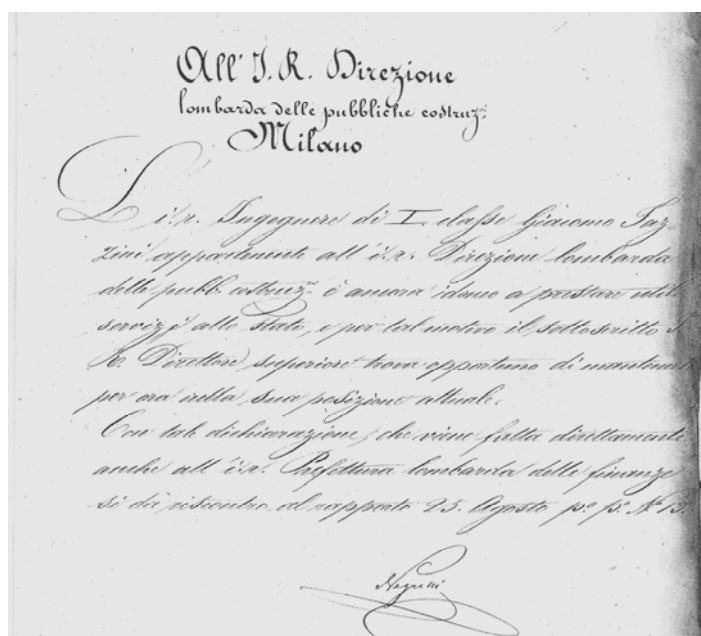 All' I. R. Direzione
lombarda delle pubbliche costruz.ni
Milano
L' i. r. Ingegnere di I. classe Giacomo Taz-
zini appartenente all' i. r. Direzione lombarda
delle pubb. costruz.ni è ancora idoneo a prestare utili
servizj allo Stato, e per tal motivo il sottoscritto I.
R. Direttore superiore trova opportuno di mantenerlo
per ora nella sua posizione attuale.
Con tale dichiarazione, che viene fatta direttamente
anche all' i. r. Prefettura lombarda delle finanze
si dà riscontro al rapporto 25. Agosto p.o p.o N.o 13.
Negrelli